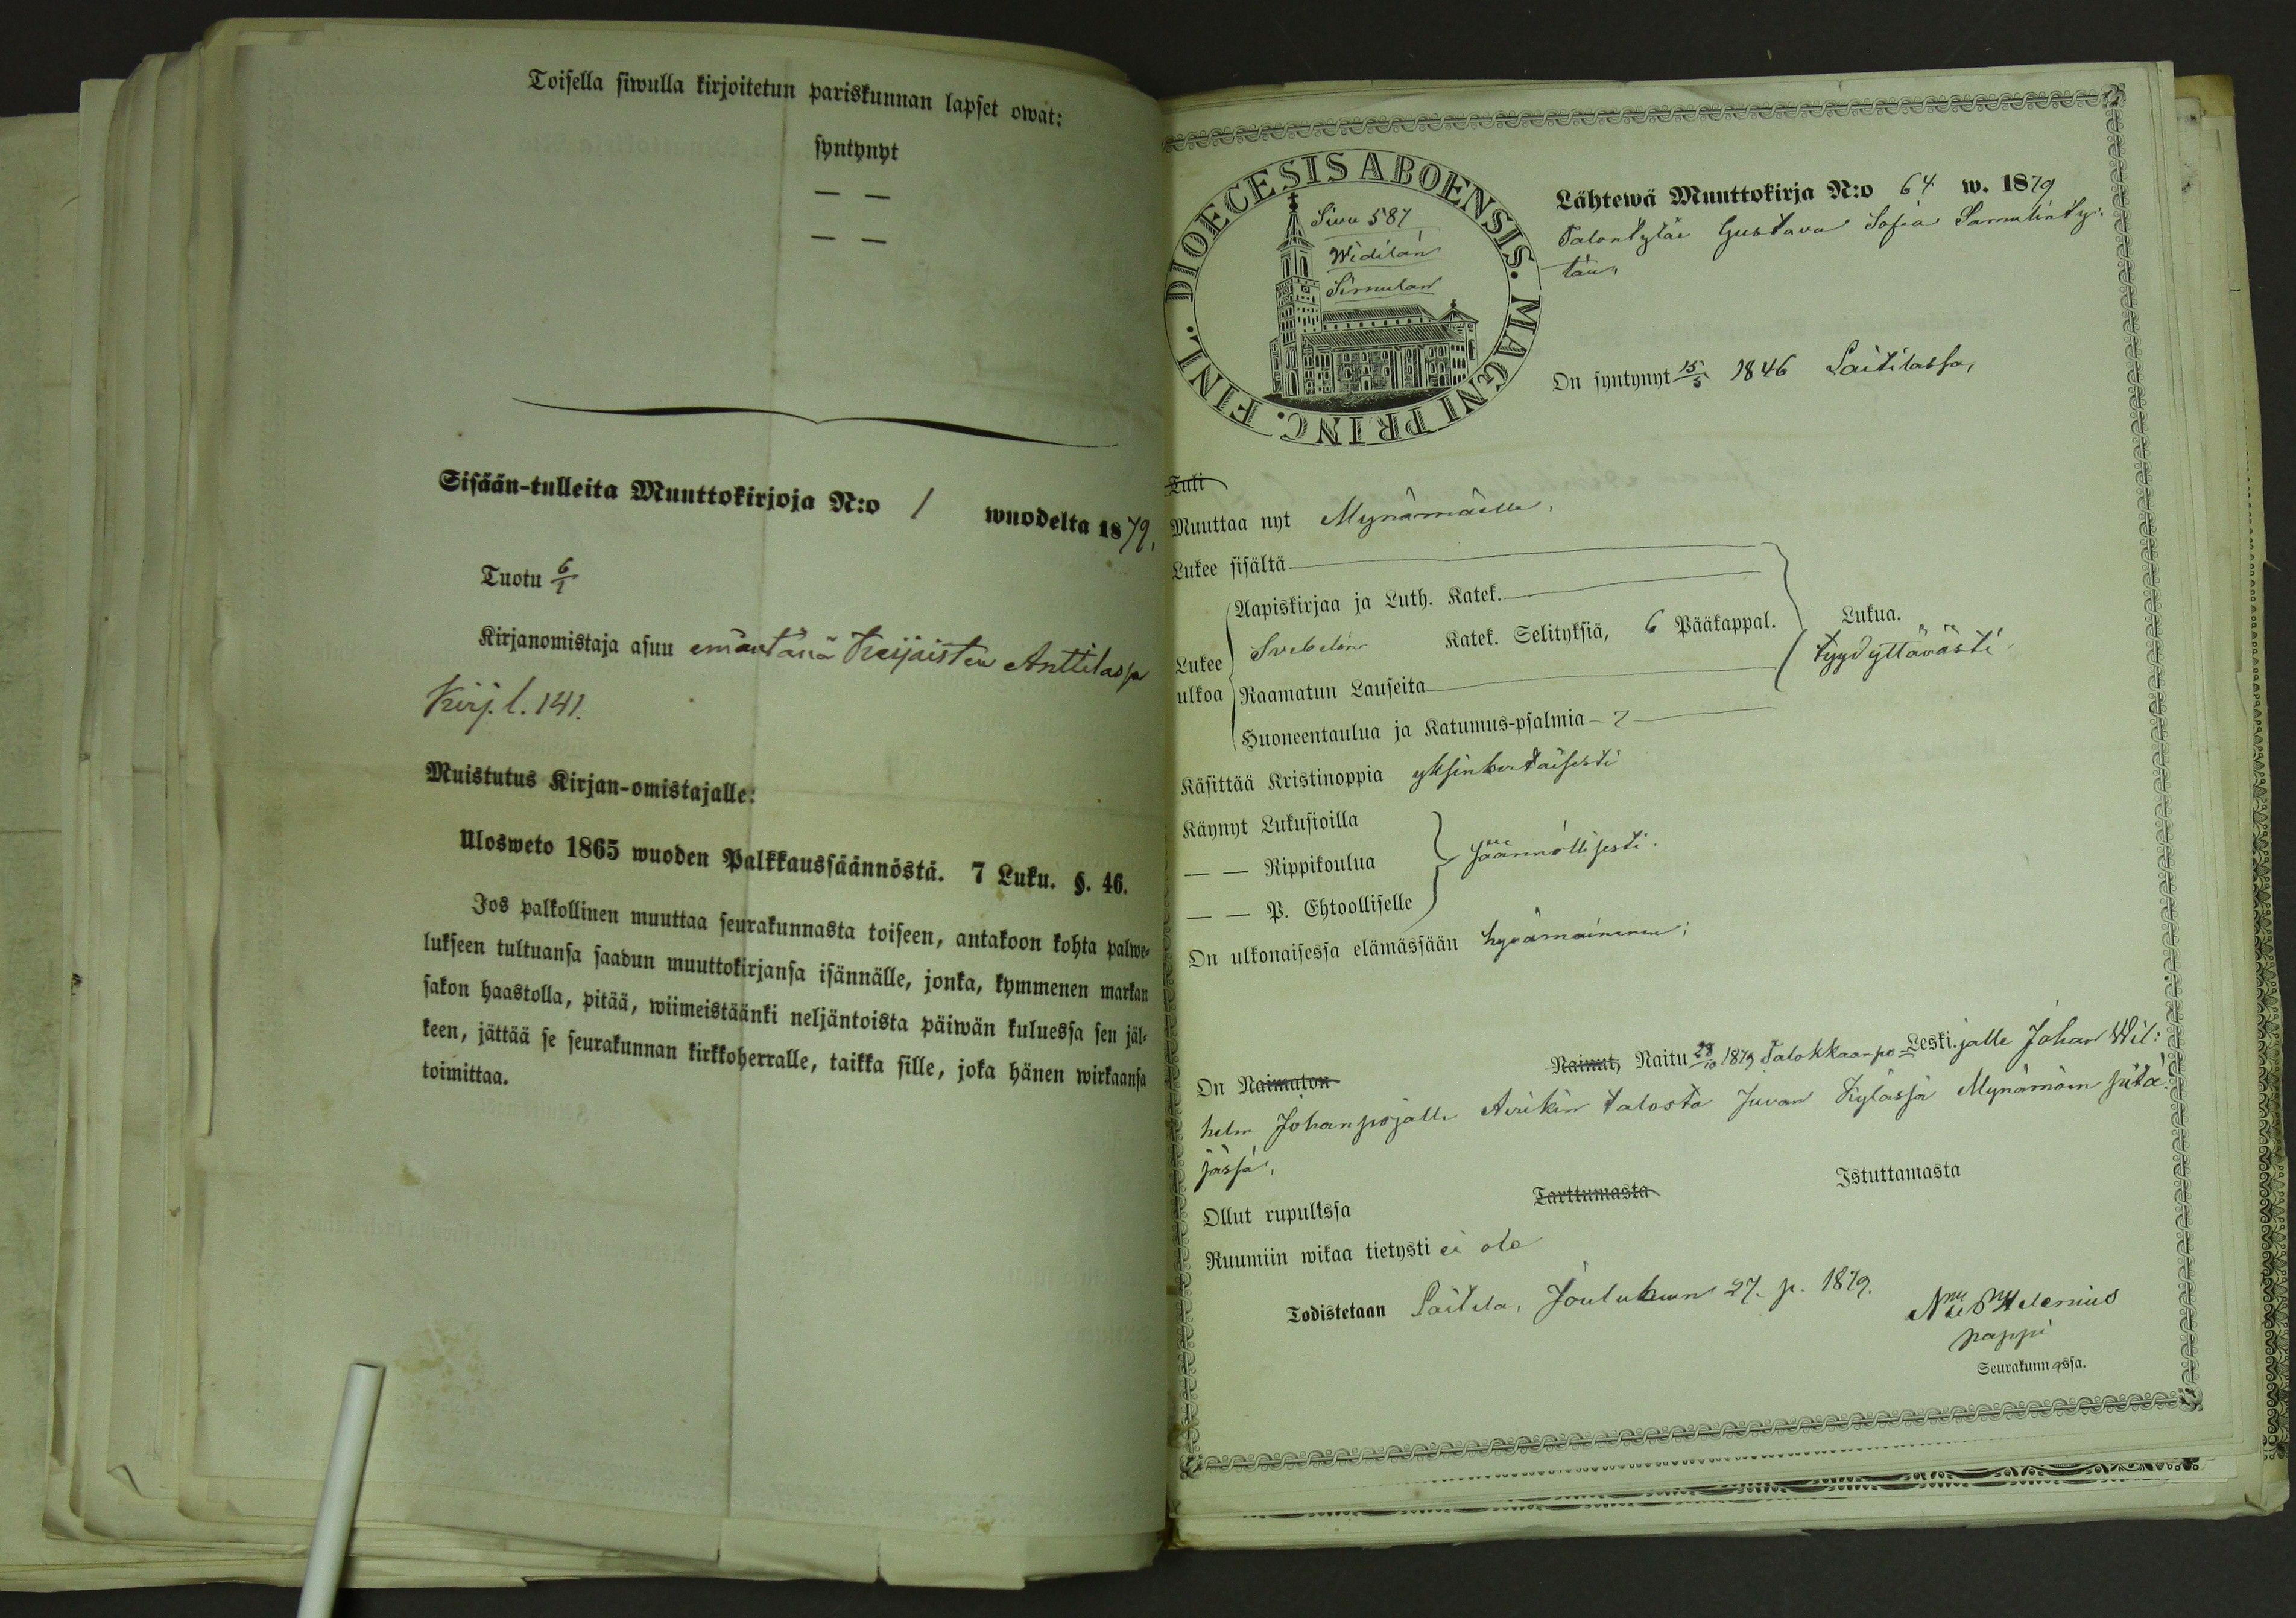 Toisella siwulla kirjoitetun pariskunnan lapset owat:
syntynyt
— —
— —
Sisään-tulleita Muuttokirjoja N:o 1 wuodelta 1879.
Tuotu 6/1
Kirjanomistaja asuu emäntänä Anttilassa
Kirj. l. 141.
Muistutus Kirjan-omistajalle:
Ulosweto 1865 wuoden Palkkaussäännöstä. 7 Luku. §. 46.
Jos palkollinen muuttaa seurakunnasta toiseen, antakoon kohta palwe-
lukseen tultuansa saadun muuttokirjansa isännälle, jonka, kymmenen markan
sakon haastolla, pitää, wiimeistäänki neljäntoista päiwän kuluessa sen jäl-
keen, jättää se seurakunnan kirkkoherralle, taikka sille, joka hänen wirkaansa
toimittaa.
DIOECESIS ABOENSIS. MAGNI PRINC. FINL.
Siwu 587
Widilän
Simulan
Lähtewä Muuttokirja N:o 64 w. 1879
Talontytär Gustava Sofia Samulinty-
tär,
On syntynyt 15/5 1846 Laitilassa,
Tuli
Muuttaa nyt Mynämäelle,
Lukee sisältä
Aapiskirjaa ja Luth. Katek.
Lukee ulkoa Svebelin Katek. Selityksiä, 6 Pääkappal.
Raamatun Lauseita
Huoneentaulua ja Katumus-psalmia
Lukua.
tyydyttävästi
Käsittää Kristinoppia yksinkertaisesti
Käynyt Lukusioilla
— — Rippikoulua säännöllisesti.
— — P. Ehtoolliselle
On ulkonaisessa elämässään hyvämaineinen;
On Naimaton Nainut, Naitu 28/10 1879 Talokkaanpo- Leski. jalle Johan Wil:
helm Johanpojalle talosta Juvan kylässä Mynämäen pitä:
jässä,
Ollut rupulissa Tarttumasta Istuttamasta
Ruumiin wikaa tietysti ei ole
Todistetaan Laitila, Joulukuun 27. p. 1879.
Helenius
pappi
Seurakunnassa.